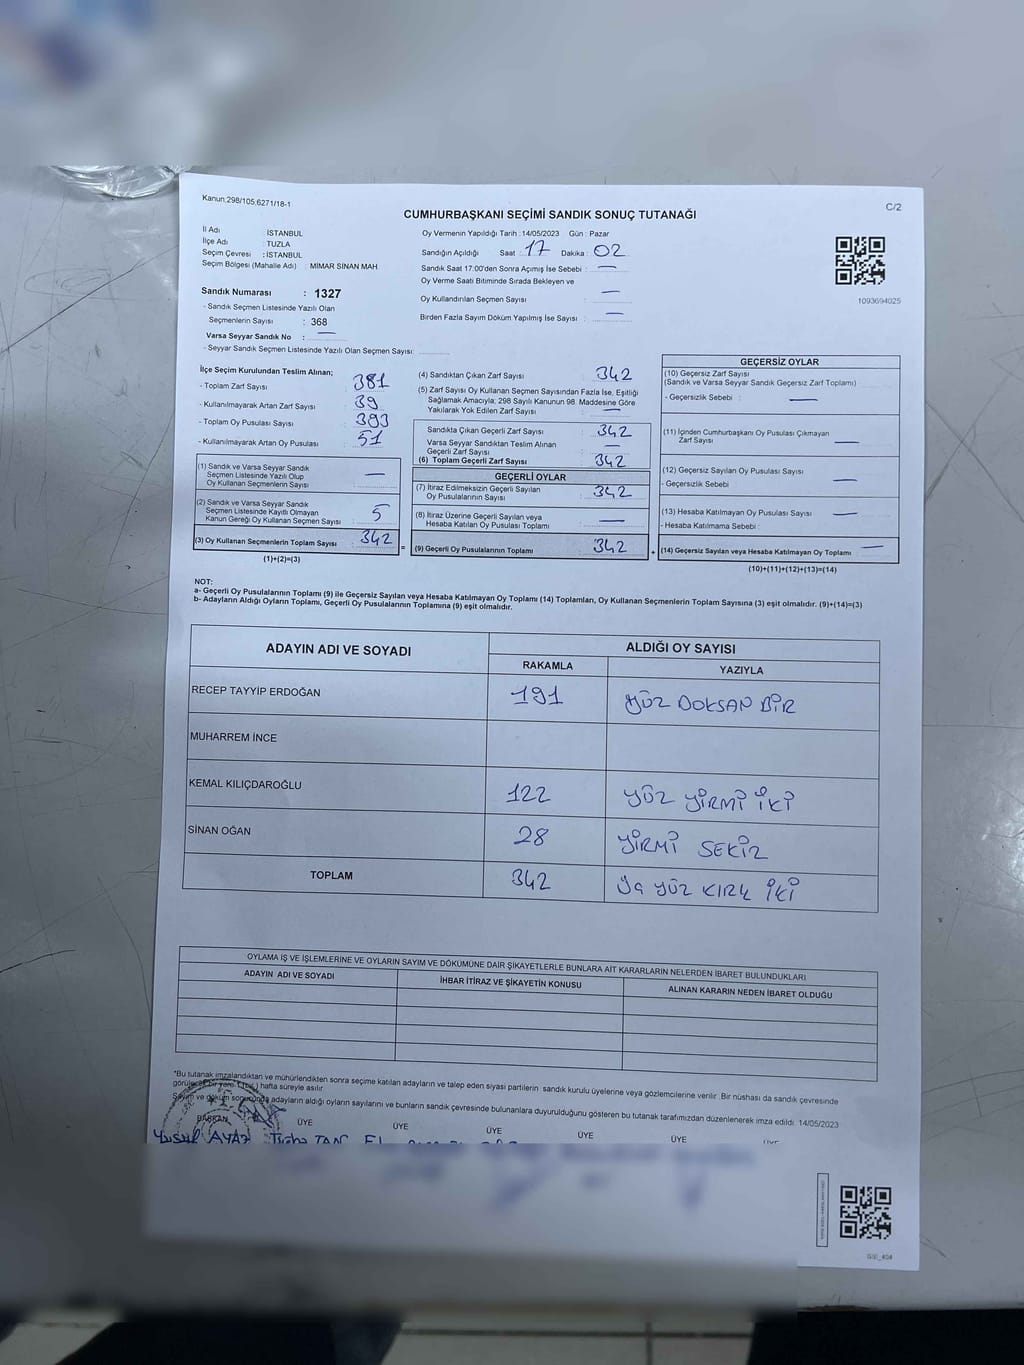 Kanun;298/105;6271/18-1
C/2
CUMHURBAŞKANI SEÇİMİ SANDIK SONUÇ TUTANAĞI
İl Adı : İSTANBUL
İlçe Adı : TUZLA
Seçim Çevresi : İSTANBUL
Seçim Bölgesi (Mahalle Adı) : MİMAR SİNAN MAH.
Sandık Numarası : 1327
- Sandık Seçmen Listesinde Yazılı Olan
Seçmenlerin Sayısı : 368
Varsa Seyyar Sandık No : —
- Seyyar Sandık Seçmen Listesinde Yazılı Olan Seçmen Sayısı:
Oy Vermenin Yapıldığı Tarih :14/05/2023 Gün : Pazar
Sandığın Açıldığı Saat : 17 Dakika : 02
Sandık Saat 17:00'den Sonra Açımış İse Sebebi : —
Oy Verme Saati Bitiminde Sırada Bekleyen ve
Oy Kullandırılan Seçmen Sayısı : —
Birden Fazla Sayım Döküm Yapılmış İse Sayısı : —
1093694025
İlçe Seçim Kurulundan Teslim Alınan;
- Toplam Zarf Sayısı : 381
- Kullanılmayarak Artan Zarf Sayısı : 39
- Toplam Oy Pusulası Sayısı : 393
- Kullanılmayarak Artan Oy Pusulası : 51
(1) Sandık ve Varsa Seyyar Sandık
Seçmen Listesinde Yazılı Olup
Oy Kullanan Seçmenlerin Sayısı : —
(2) Sandık ve Varsa Seyyar Sandık
Seçmen Listesinde Kayıtlı Olmayan
Kanun Gereği Oy Kullanan Seçmen Sayısı : 5
(3) Oy Kullanan Seçmenlerin Toplam Sayısı : 342
(1)+(2)=(3)
(4) Sandıktan Çıkan Zarf Sayısı : 342
(5) Zarf Sayısı Oy Kullanan Seçmen Sayısından Fazla İse, Eşitliği
Sağlamak Amacıyla; 298 Sayılı Kanunun 98. Maddesine Göre
Yakılarak Yok Edilen Zarf Sayısı : —
Sandıkta Çıkan Geçerli Zarf Sayısı : 342
Varsa Seyyar Sandıktan Teslim Alınan
Geçerli Zarf Sayısı : —
(6) Toplam Geçerli Zarf Sayısı : 342
GEÇERLİ OYLAR
(7) İtiraz Edilmeksizin Geçerli Sayılan
Oy Pusulalarının Sayısı : 342
(8) İtiraz Üzerine Geçerli Sayılan veya
Hesaba Katılan Oy Pusulası Toplamı : —
= (9) Geçerli Oy Pusulalarının Toplamı : 342
GEÇERSİZ OYLAR
(10) Geçersiz Zarf Sayısı
(Sandık ve Varsa Seyyar Sandık Geçersiz Zarf Toplamı)
- Geçersizlik Sebebi : —
(11) İçinden Cumhurbaşkanı Oy Pusulası Çıkmayan
Zarf Sayısı : —
(12) Geçersiz Sayılan Oy Pusulası Sayısı
- Geçersizlik Sebebi : —
(13) Hesaba Katılmayan Oy Pusulası Sayısı : —
- Hesaba Katılmama Sebebi :
+ (14) Geçersiz Sayılan veya Hesaba Katılmayan Oy Toplamı : —
(10)+(11)+(12)+(13)=(14)
NOT:
a- Geçerli Oy Pusulalarının Toplamı (9) ile Geçersiz Sayılan veya Hesaba Katılmayan Oy Toplamı (14) Toplamları, Oy Kullanan Seçmenlerin Toplam Sayısına (3) eşit olmalıdır. (9)+(14)=(3)
b- Adayların Aldığı Oyların Toplamı, Geçerli Oy Pusulalarının Toplamına (9) eşit olmalıdır.
ADAYIN ADI VE SOYADI
ALDIĞI OY SAYISI
RAKAMLA YAZIYLA
RECEP TAYYİP ERDOĞAN 191 YÜZ DOKSAN BİR
MUHARREM İNCE
KEMAL KILIÇDAROĞLU 122 YÜZ YİRMİ İKİ
SİNAN OĞAN 28 YİRMİ SEKİZ
TOPLAM 342 YÜZ KIRK İKİ
OYLAMA İŞ VE İŞLEMLERİNE VE OYLARIN SAYIM VE DÖKÜMÜNE DAİR ŞİKAYETLERLE BUNLARA AİT KARARLARIN NELERDEN İBARET BULUNDUKLARI
ADAYIN ADI VE SOYADI İHBAR İTİRAZ VE ŞİKAYETİN KONUSU ALINAN KARARIN NEDEN İBARET OLDUĞU
*Bu tutanak imzalandıktan ve mühürlendikten sonra seçime katılan adayların ve talep eden siyasi partilerin sandık kurulu üyelerine veya gözlemcilerine verilir. Bir nüshası da sandık çevresinde
hafta süreyle asılır.
adayların aldığı oyların sayılarını ve bunların sandık çevresinde bulunanlara duyurulduğunu gösteren bu tutanak tarafımızdan düzenlenerek imza edildi. 14/05/2023
BAŞKAN ÜYE ÜYE ÜYE ÜYE ÜYE
Yusuf AYAZ Tuğba